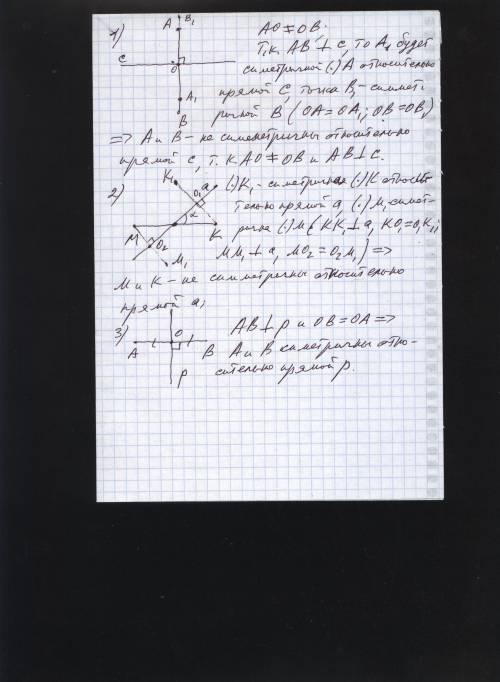 1) A B₁ AO ≠ OB.
Т.к. AB ⊥ c, то A₁ будет
c O симетричной (·) A относительно
прямой C, точка B₁ - симмет-
A₁ B ричной B (OA = OA₁; OB = OB₁)
=> A и B - не симметричны относительно
прямой c, т.к AO ≠ OB и AB ⊥ c.
2) K₁ O₁ a (·) K₁ - симетричная (·) K относи-
тельно прямой a, (·) M₁ симет-
M α K рична (·) M, (KK₁ ⊥ a, KO₁ = O₁K₁;
O₂ M₁ MM₁ ⊥ a, MO₂ = O₂M₁) =>
M и K - не симметричны относительно
прямой a,
3) O AB ⊥ p и OB = OA =>
A B A и B симетричны отно-
p сительно прямой p.